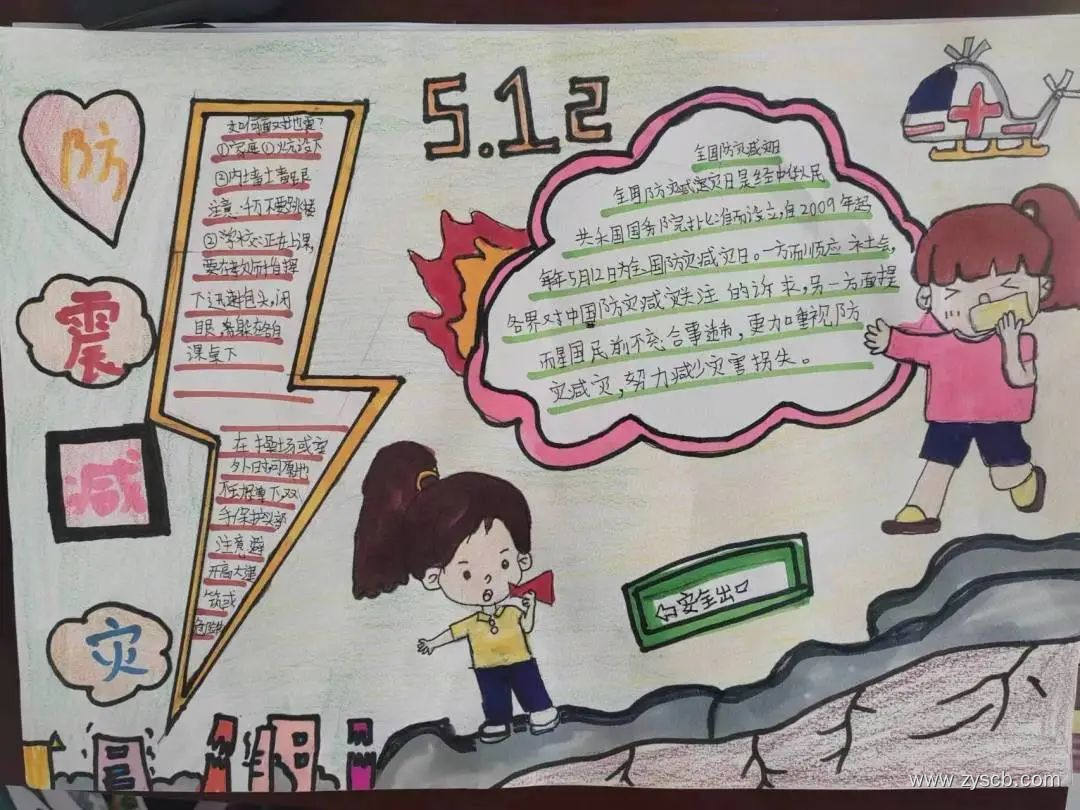 防
震
减
灾
如何面对地震?
①家庭①炕沿下
②内墙墙
注意:千万不要跳楼
②学校:正在上课,
要在教师指挥
下迅速抱头,闭
眼,躲在各自
课桌下
在操场或室
外时可原地
不动蹲下,双
手保护头部
注意避
开高大建
筑或
危险物
5.12
全国防灾减灾日
全国防灾减灾日是经中华人民
共和国国务院批准而设立,自2009年起
每年5月12日为全国防灾减灾日。一方面顺应社会,
各界对中国防灾减灾关注的诉求,另一方面提
国民前不忘
更加重视防
灾减灾,努力减少灾害损失。
安全出口
www.zyscb.com